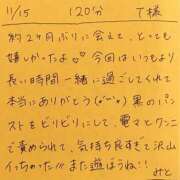 11/15 120分 T様
約2ヶ月ぶりに会えて、とても
嬉しかったよ♡今回はいつもより
長い時間一緒に過ごしてくれて
本当にありがとう(*´˘`*)黒のパン
ストをビリビリにして、電マとクンニ
で責められて、気持ち良すぎて沢山
イっちゃった!!!また遊ぼうね!!みと